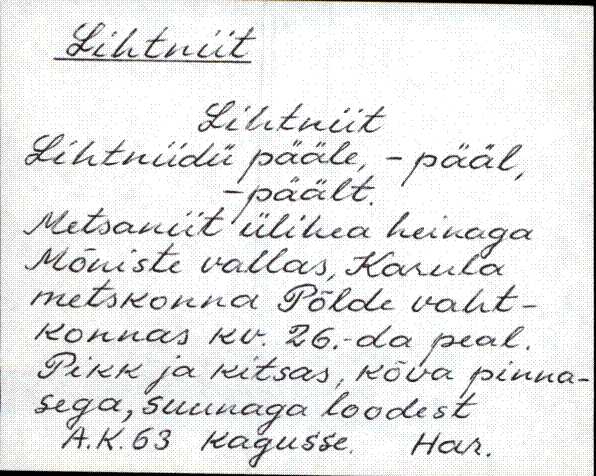 Lihtniit
Lihtniit
Lihtniidü pääle, - pääl,
- päält.
Metsaniit ülihea heinaga
Mõniste vallas, Karula
metskonna Põlde vaht-
konnas kv. 26.-da peal.
Pikk ja kitsas, kõva pinna-
sega, suunaga loodest
A.K. 63 kagusse. Har.